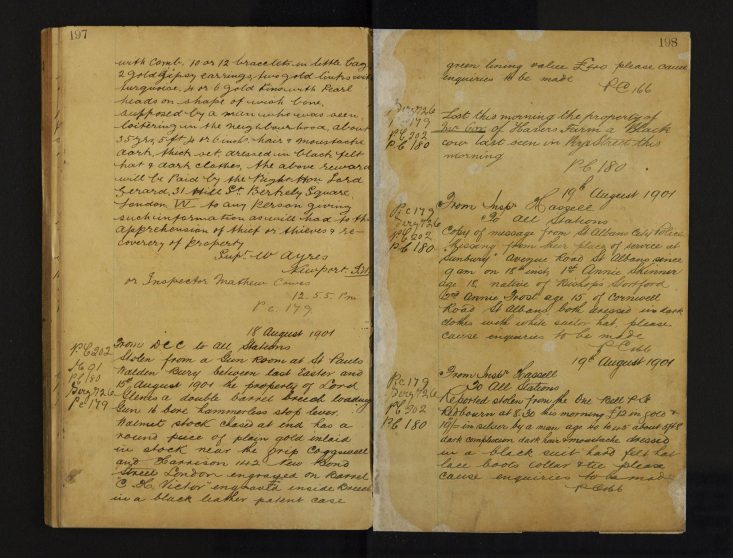 197
with Comb. 10 or 12 bracelets in little bag
2 gold Gipsy earrings, two gold links with
turquoise, 4 or 6 gold pins with Pearl
heads on shape of wish bone.
supposed by a man who was seen
loitering in the neighbourhood, about
35 yrs, 5 ft 4 or 6 ins. hair & moustache
dark, thick set, dressed in black felt
hat & dark clothes, the above reward
will be paid by the Right Hon Lord
Gerard, 31 Hill St. Berkely Square.
London. W. to any Person giving
such information as will lead to the
apprehension of thief or thieves & re-
covery of Property
Supt. W Ayres
Newport
or Inspector Mathew Cowes
12.55. Pm
P.c. 179
18 August 1901
PC 202
From DCC to all Stations
Stolen from a Gun Room at St Pauls
91
PC 180
Walden Bury between last Easter and
15th August 1901 the property of Lord
Serg 726
Glamis a double barrel breech loading
Pc 179
Gun 16 bore hammerless stop lever.
Walnut stock closed at end has a
round piece of plain gold inlaid
in stock near the grip Coggswell
and Harrison 142 New Bond
Street London engraved on barrel
"C. H. Victor" engraved inside breech
in a black leather patent case
198
green lining value £ please cause
enquiries to be made
PC 166
Serg 726
Lost this morning the property of
179
PC 202
of Farm a Black
PC 180
cow last seen in Street this
morning
PC 180
19th August 1901
From Inspr Hassell
Pc 179
To All Stations
Serg 726
Copy of message from St Albans City Police
PC 202
Missing from their place of service at
PC 180
"Sunbury" Avenue Road St Albans since
9 am on 18th inst, 1st Annie Skinner
age 18, native of Bishops Stortford
2nd Annie Frost age 15, of Cornwell
Road St Albans, both dressed in dark
clothes with white sailor hat. please
cause enquiries to be made
PC 166
19th August 1901
From Inspr Hassell
Pc 179
To All Stations
Serg 726
Reported stolen from the Bell P.H.
PC 202
Redbourn at 8.30 this morning £ in gold &
PC 180
10/= in silver by a man age 40 to 45 about 5ft 8
dark complexion dark hair & moustache dressed
in a black suit hard felt hat
lace boots collar & tie please
cause enquiries to be made
PC 166